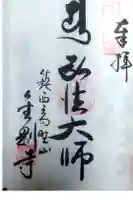 奉拝
弘法大師
筑西高野山
金剛寺